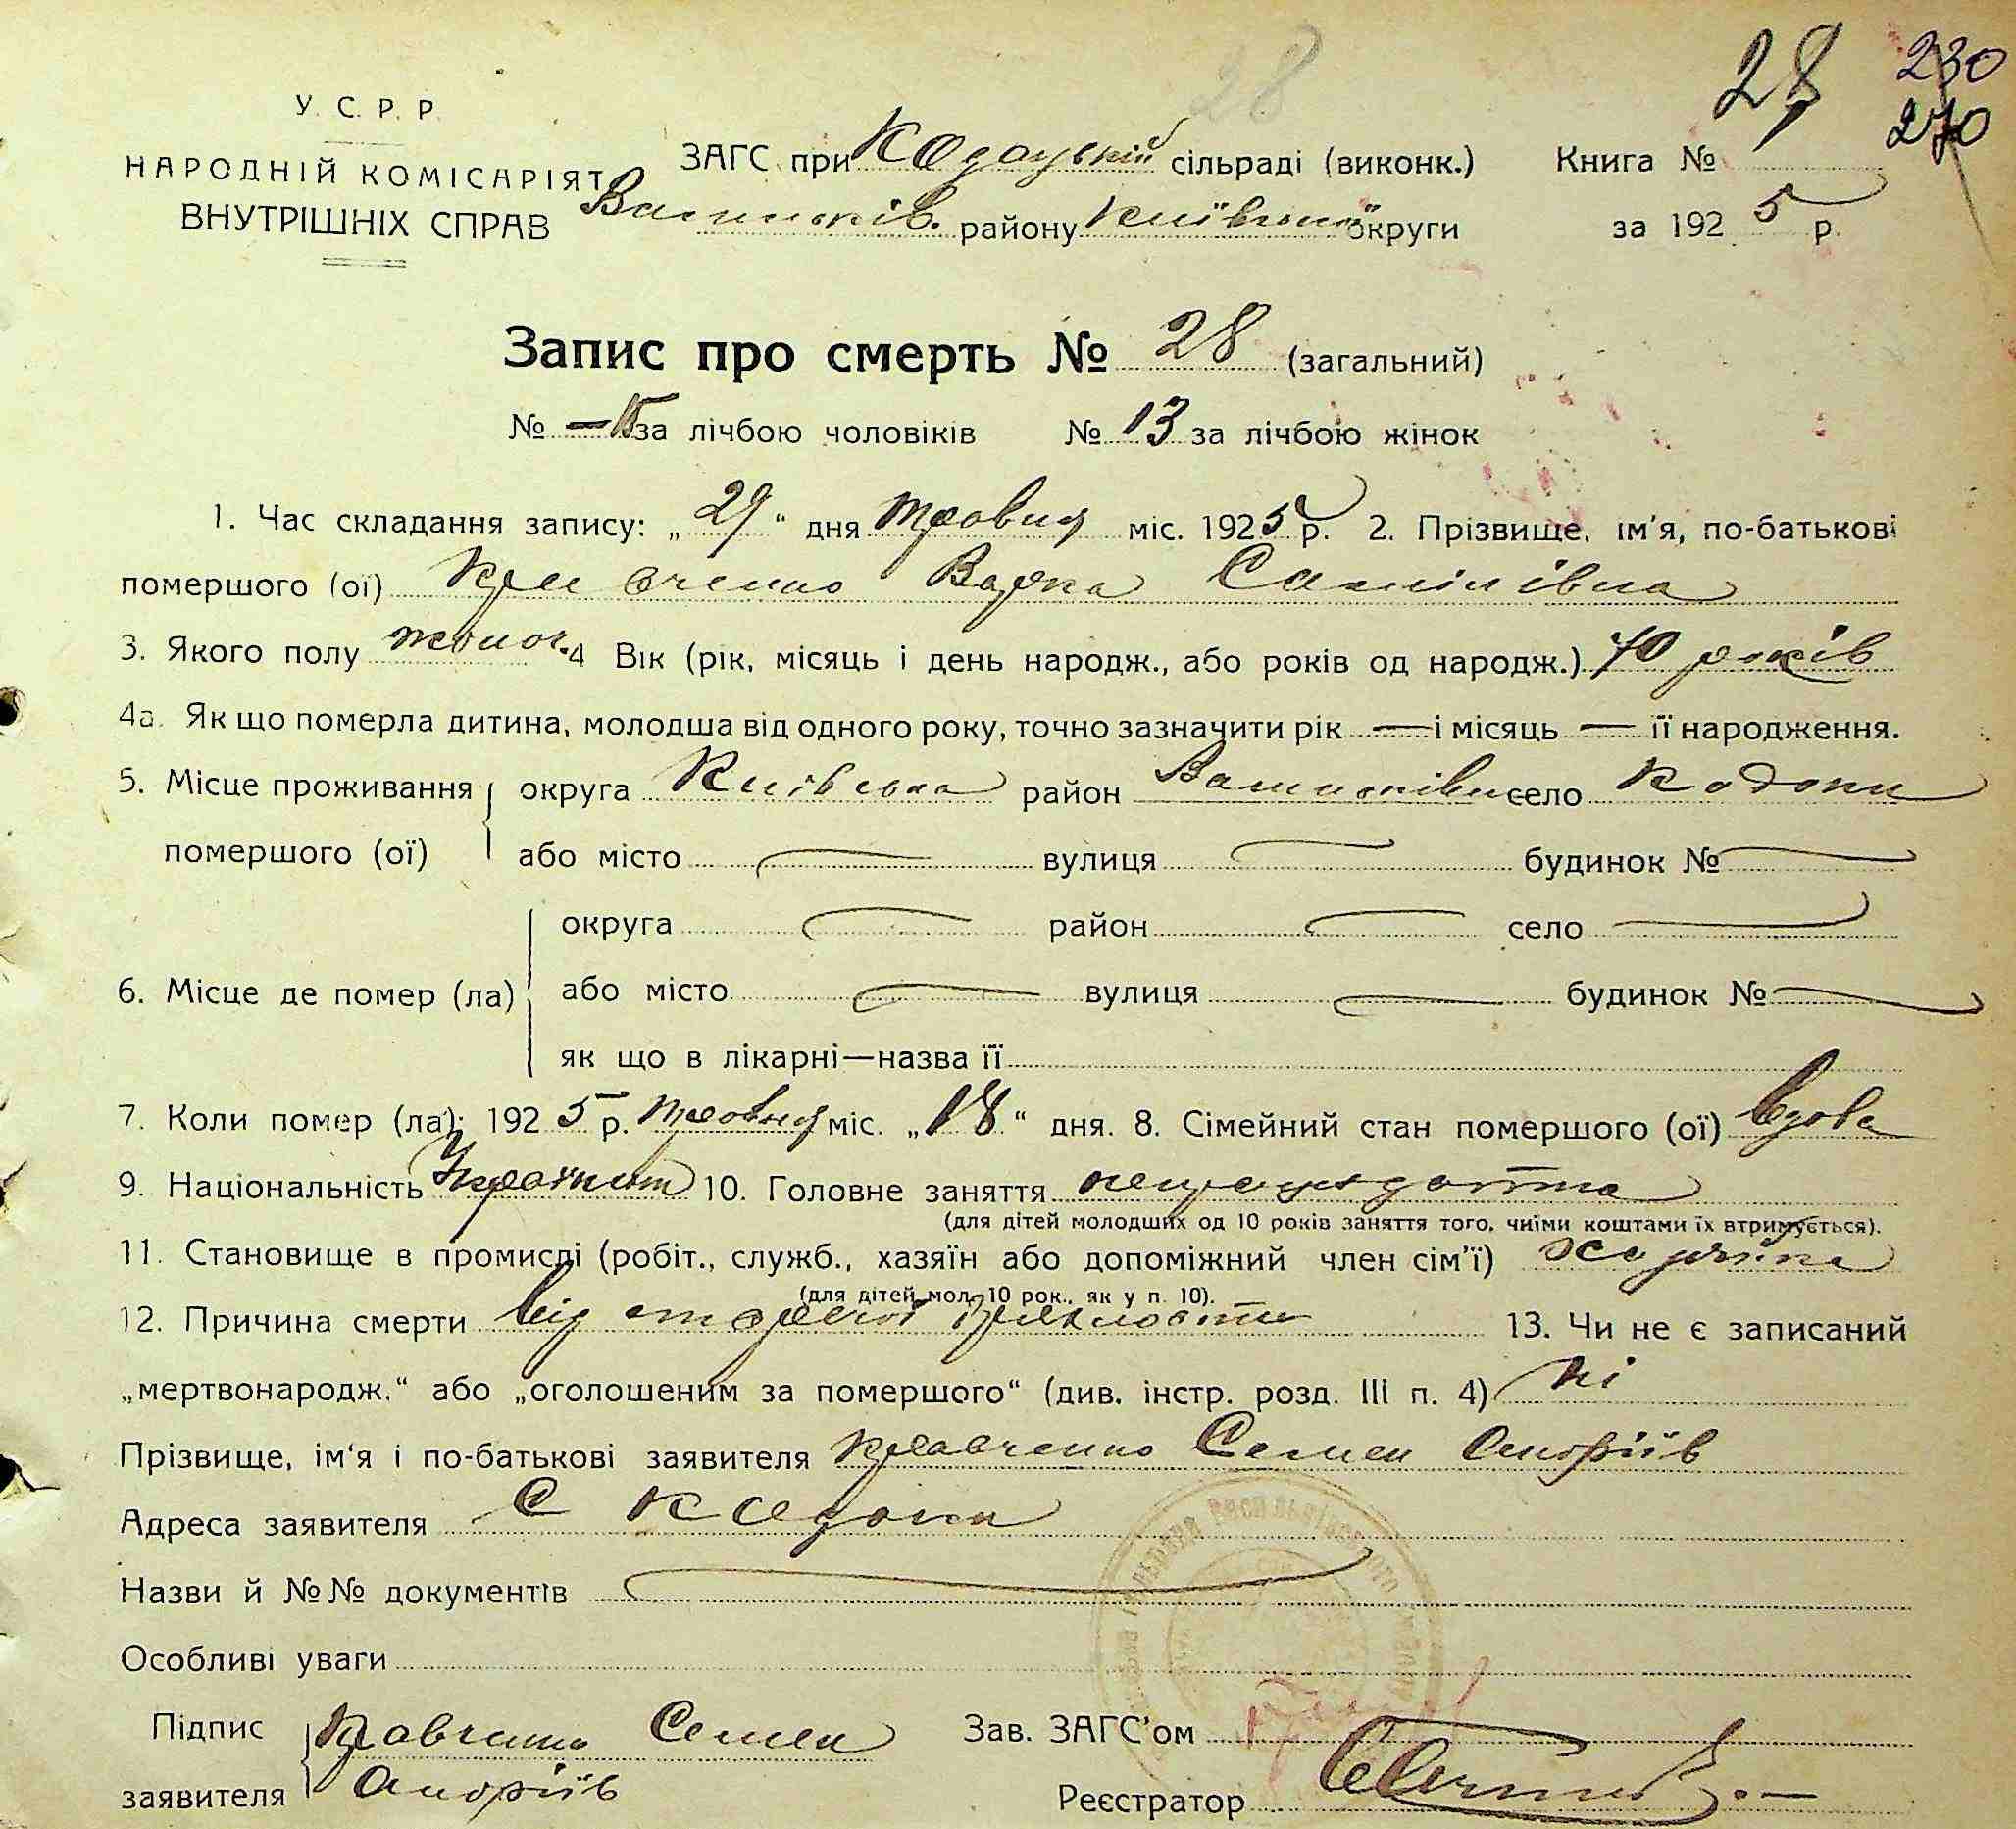 28
28
230
270
У. С. Р. Р.
НАРОДНІЙ КОМІСАРІЯТ
ВНУТРІШНІХ СПРАВ
ЗАГС при Кодацькій сільраді (виконк.) Книга №
Васильків. району Київської округи за 1925 р.
Запис про смерть № 28 (загальний)
№ — 15 за лічбою чоловіків № 13 за лічбою жінок
1. Час складання запису: „29“ дня травня міс. 1925 р. 2. Прізвище, ім'я, по-батькові
помершого (ої) Варка
3. Якого полу жіноч. 4 Вік (рік, місяць і день народж., або років од народж.) 70 років
4а. Як що померла дитина, молодша від одного року, точно зазначити рік — і місяць — її народження.
5. Місце проживання помершого (ої) округа Київська район село Кодаки
або місто — вулиця — будинок № —
6. Місце де помер (ла) округа — район — село —
або місто — вулиця — будинок № —
як що в лікарні—назва її
7. Коли помер (ла): 1925 р. травня міс. „18“ дня. 8. Сімейний стан помершого (ої) вдова
9. Національність 10. Головне заняття
(для дітей молодших од 10 років заняття того, чиїми коштами їх втримується).
11. Становище в промислі (робіт., служб., хазяїн або допоміжний член сім'ї) хазяйка
(для дітей мол. 10 рок., як у п. 10).
12. Причина смерти від 13. Чи не є записаний
„мертвонародж.“ або „оголошеним за помершого“ (див. інстр. розд. III п. 4) ні
Прізвище, ім'я і по-батькові заявителя Кравченко Семен Андріїв
Адреса заявителя С Кодаки
Назви й №№ документів —
Особливі уваги
Підпис заявителя Кравченко Семен
Андріїв
Зав. ЗАГС'ом
Реєстратор